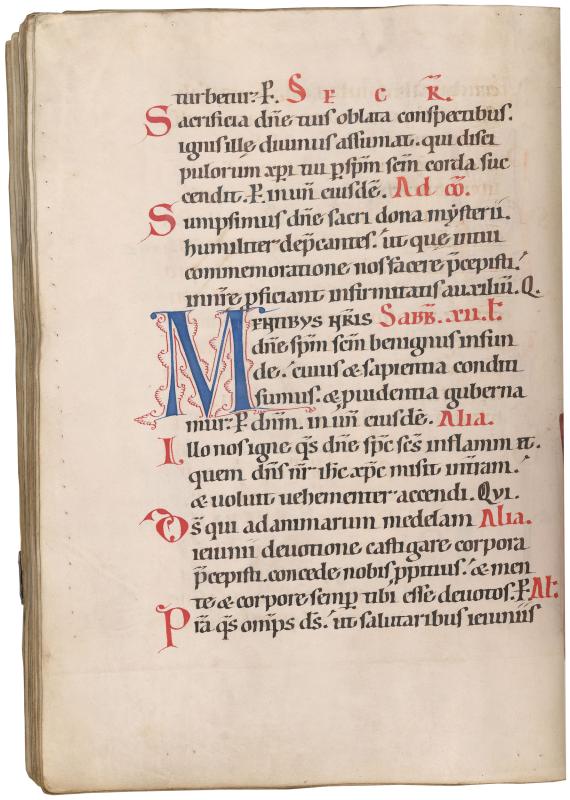 turbetur. P. SECR.
Sacrificia dñe tuis oblata conspectibus.
ignis ille diuinus assumat. qui disci
pulorum xpi tui p spm scm corda suc
cendit. P. in uñ eiusdē. Ad cō.
Sumpsimus dñe sacri dona mysterii.
humiliter depcantes. ut que in tui
commemoratione nos facere pcepisti.
in nr̄e pficiant infirmitatis auxiliū. Q.
MENTIBVS NRIS Sabb. xii. l.
dñe spm scm benignus infun
de. cuius & sapientia conditi
sumus. & puidentia guberna
mur. P. dnm. in uñ eiusdē. Alia.
Illo nos igne qs dñe spc scs inflammet.
quem dns nr ihc xpc misit in tram.
& uoluit uehementer accendi. Qui.
Ds qui ad animarum medelam Alia.
ieiunii deuotione castigare corpora
pcepisti. concede nobis ppitius. & men
te & corpore semp tibi esse deuotos. P. Al.
Pra qs omps ds. ut salutaribus ieiuniis